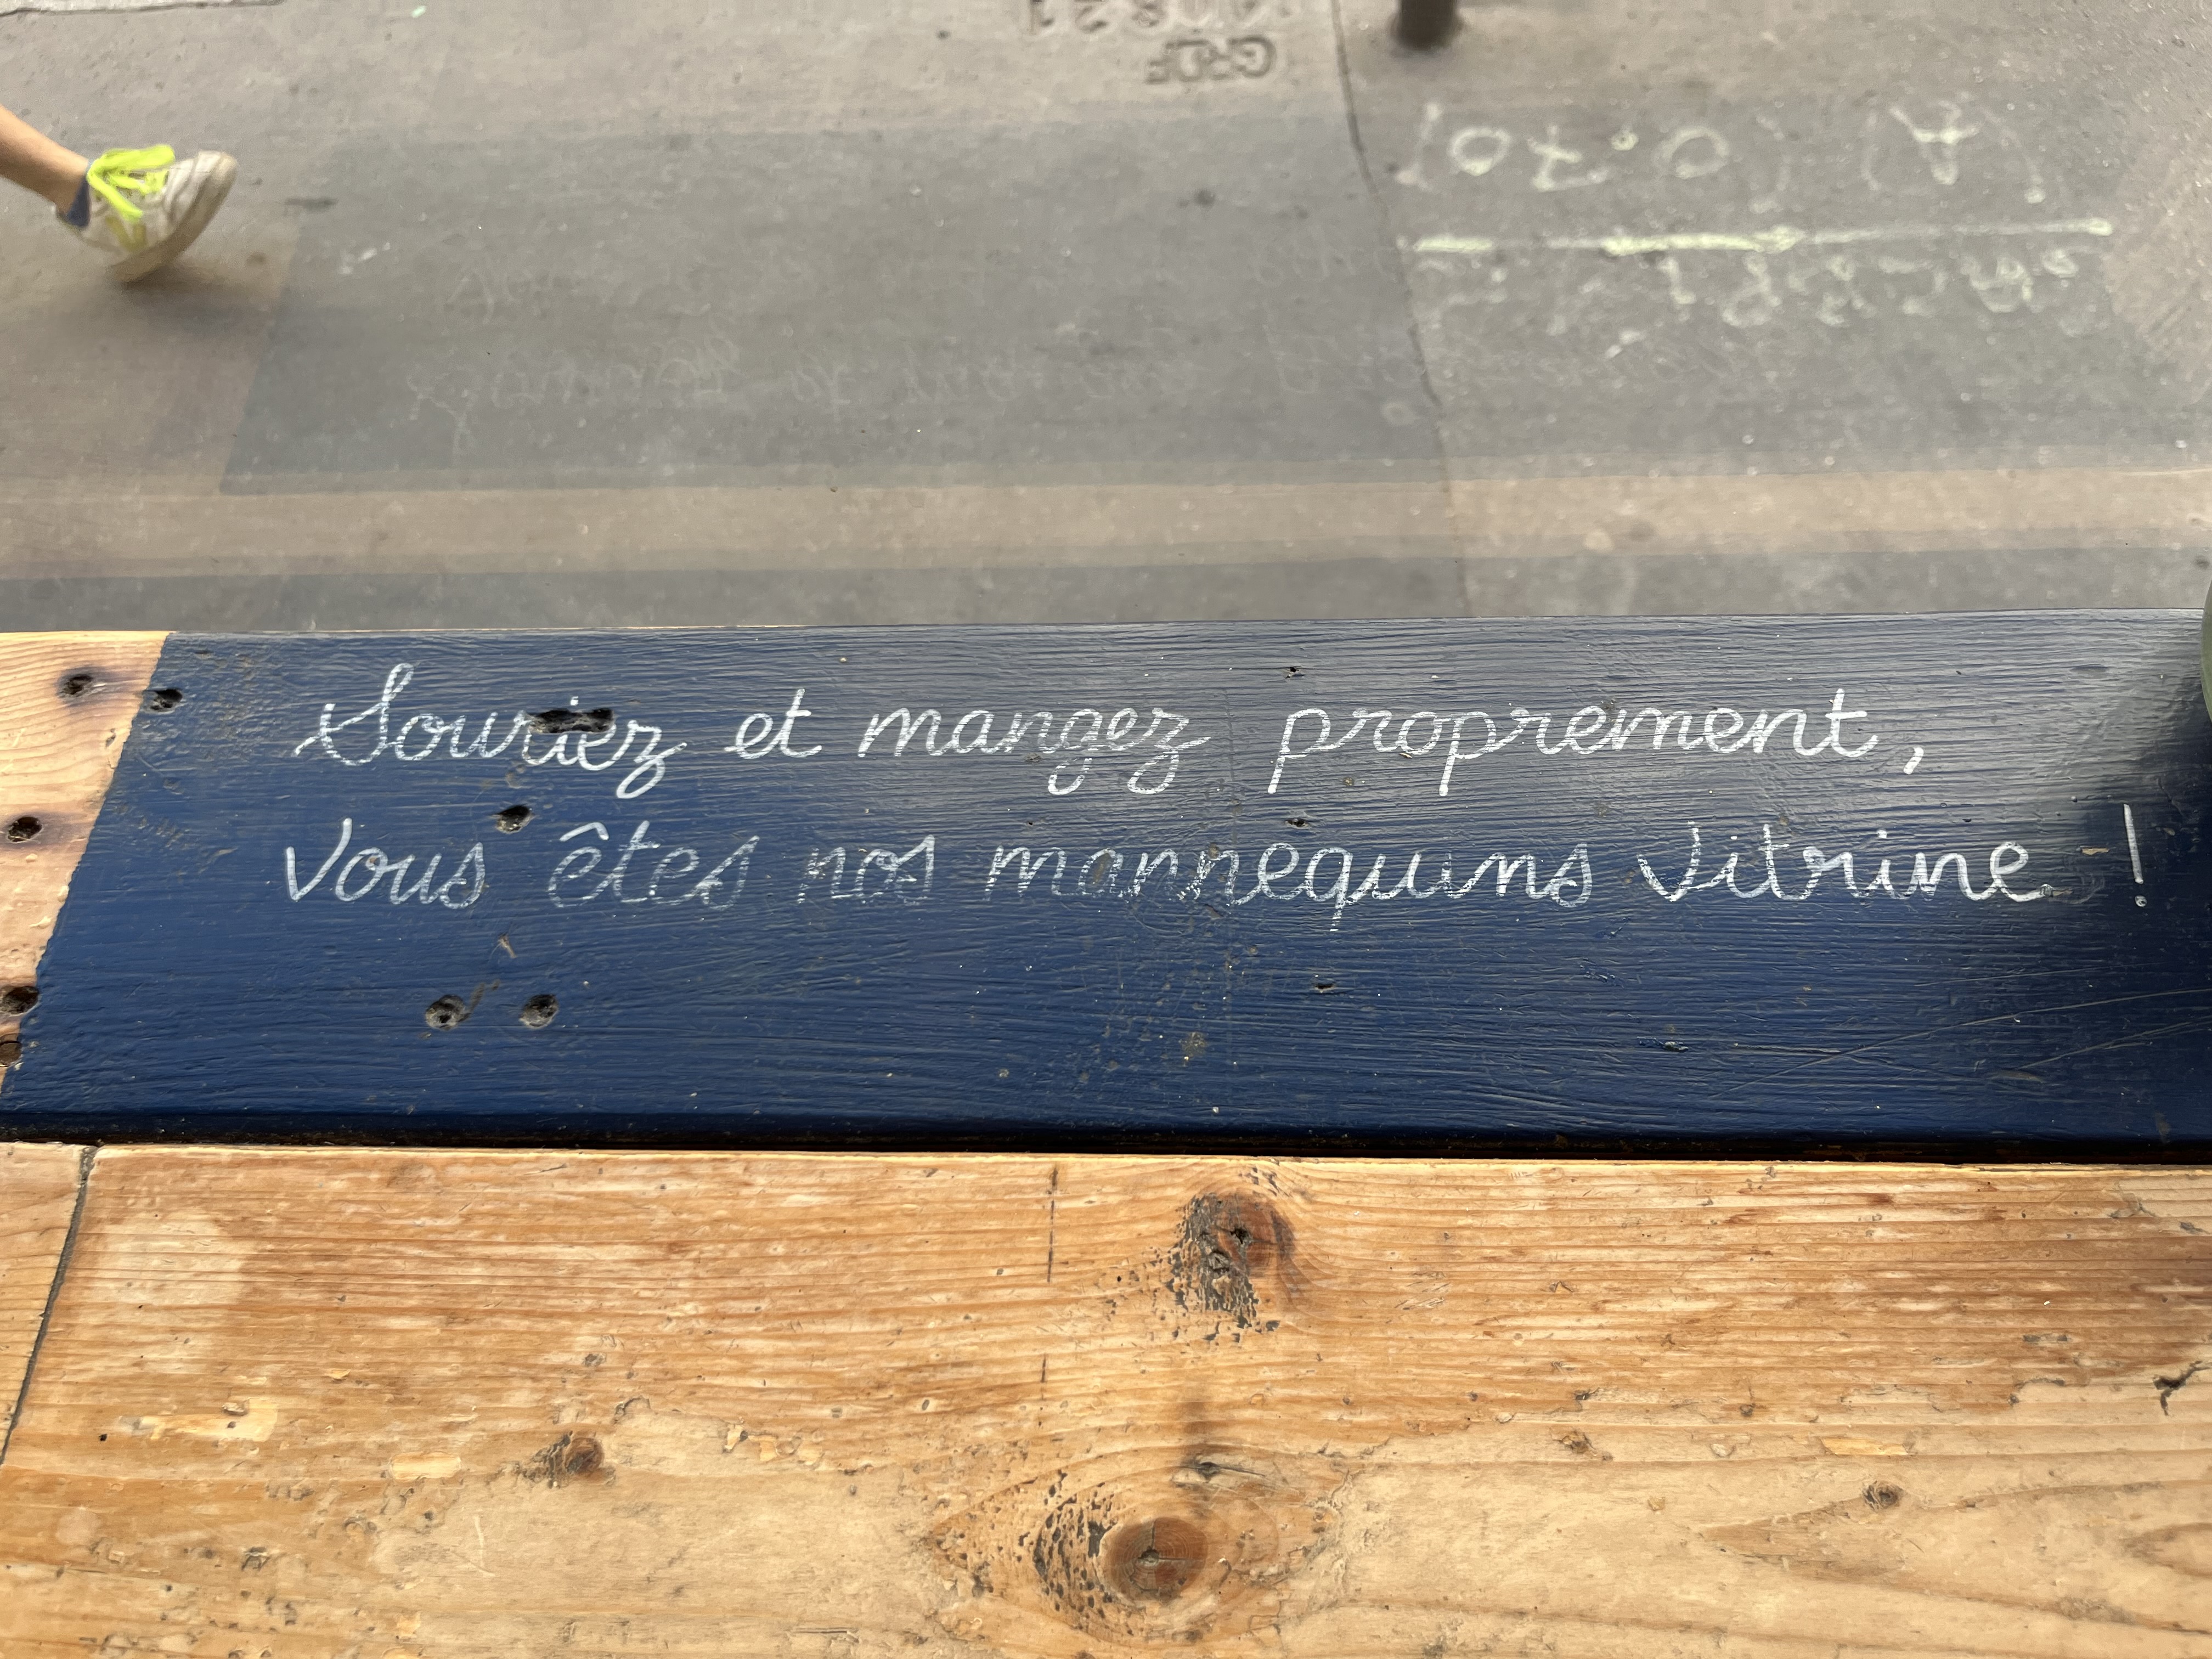 GRDF
Souriez et mangez proprement,
Vous êtes nos mannequins vitrine !